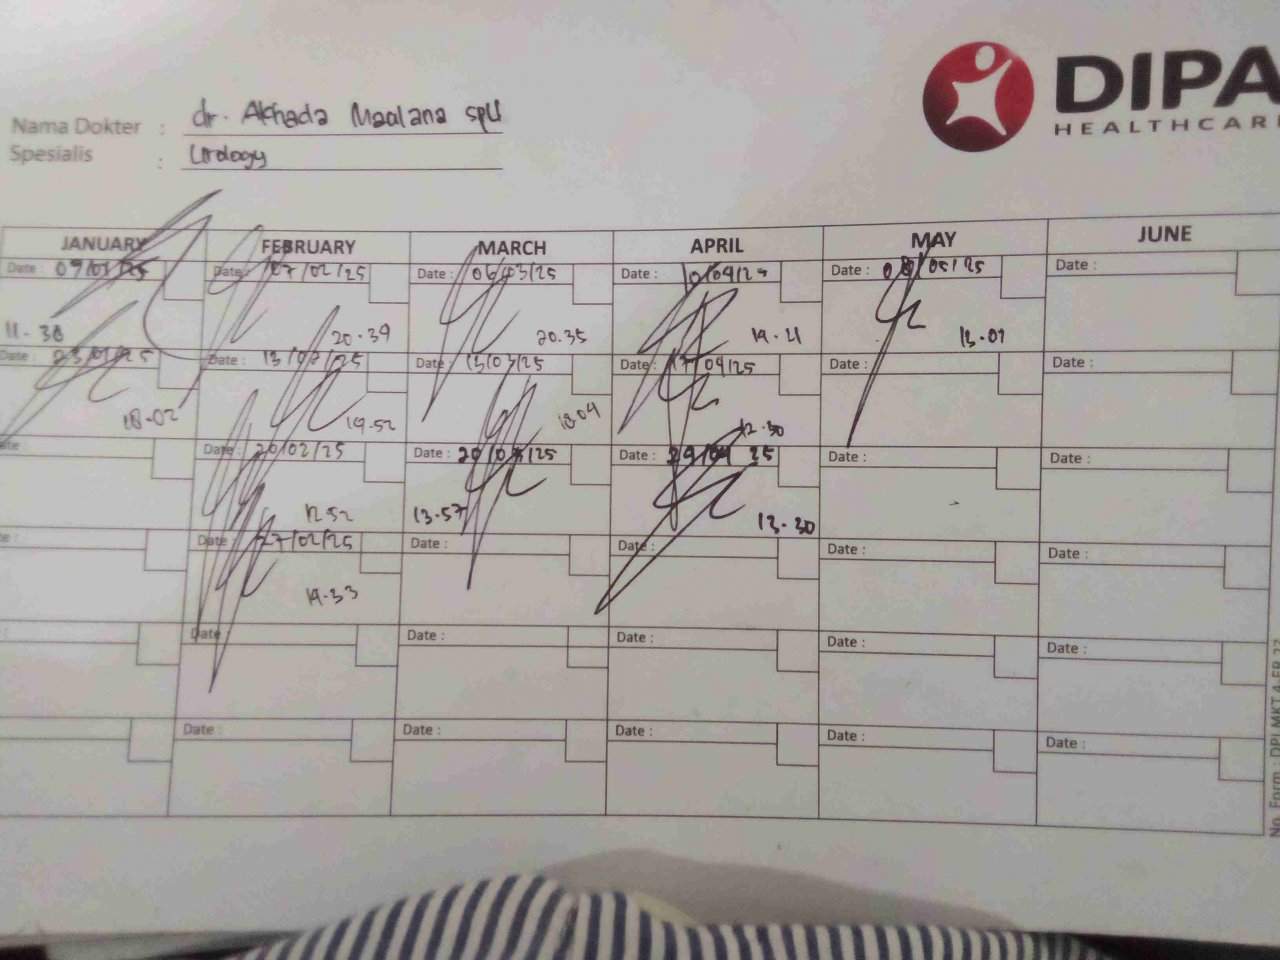 DIPA
HEALTHCAR
Nama Dokter : dr. Akhada Maulana SpU
Spesialis : Urology
JANUARY FEBRUARY MARCH APRIL MAY JUNE
Date : 09/01/25 Date : 07/02/25 Date : 06/03/25 Date : 10/04/25 Date : 08/05/25 Date :
11-38 20-39 20.35 19-21 13-07
Date : 23/01/25 Date : 13/02/25 Date : 13/03/25 Date : 17/04/25 Date : Date :
18-02 19-52 18-09 12-30
Date : 20/02/25 Date : 20/03/25 Date : Date : Date :
12-52 13-57 13-30
Date : 27/02/25 Date : Date : Date : Date :
19-33
Date : Date : Date : Date : Date :
Date : Date : Date : Date : Date :
No. Form : DPI.MKT.4-FR.